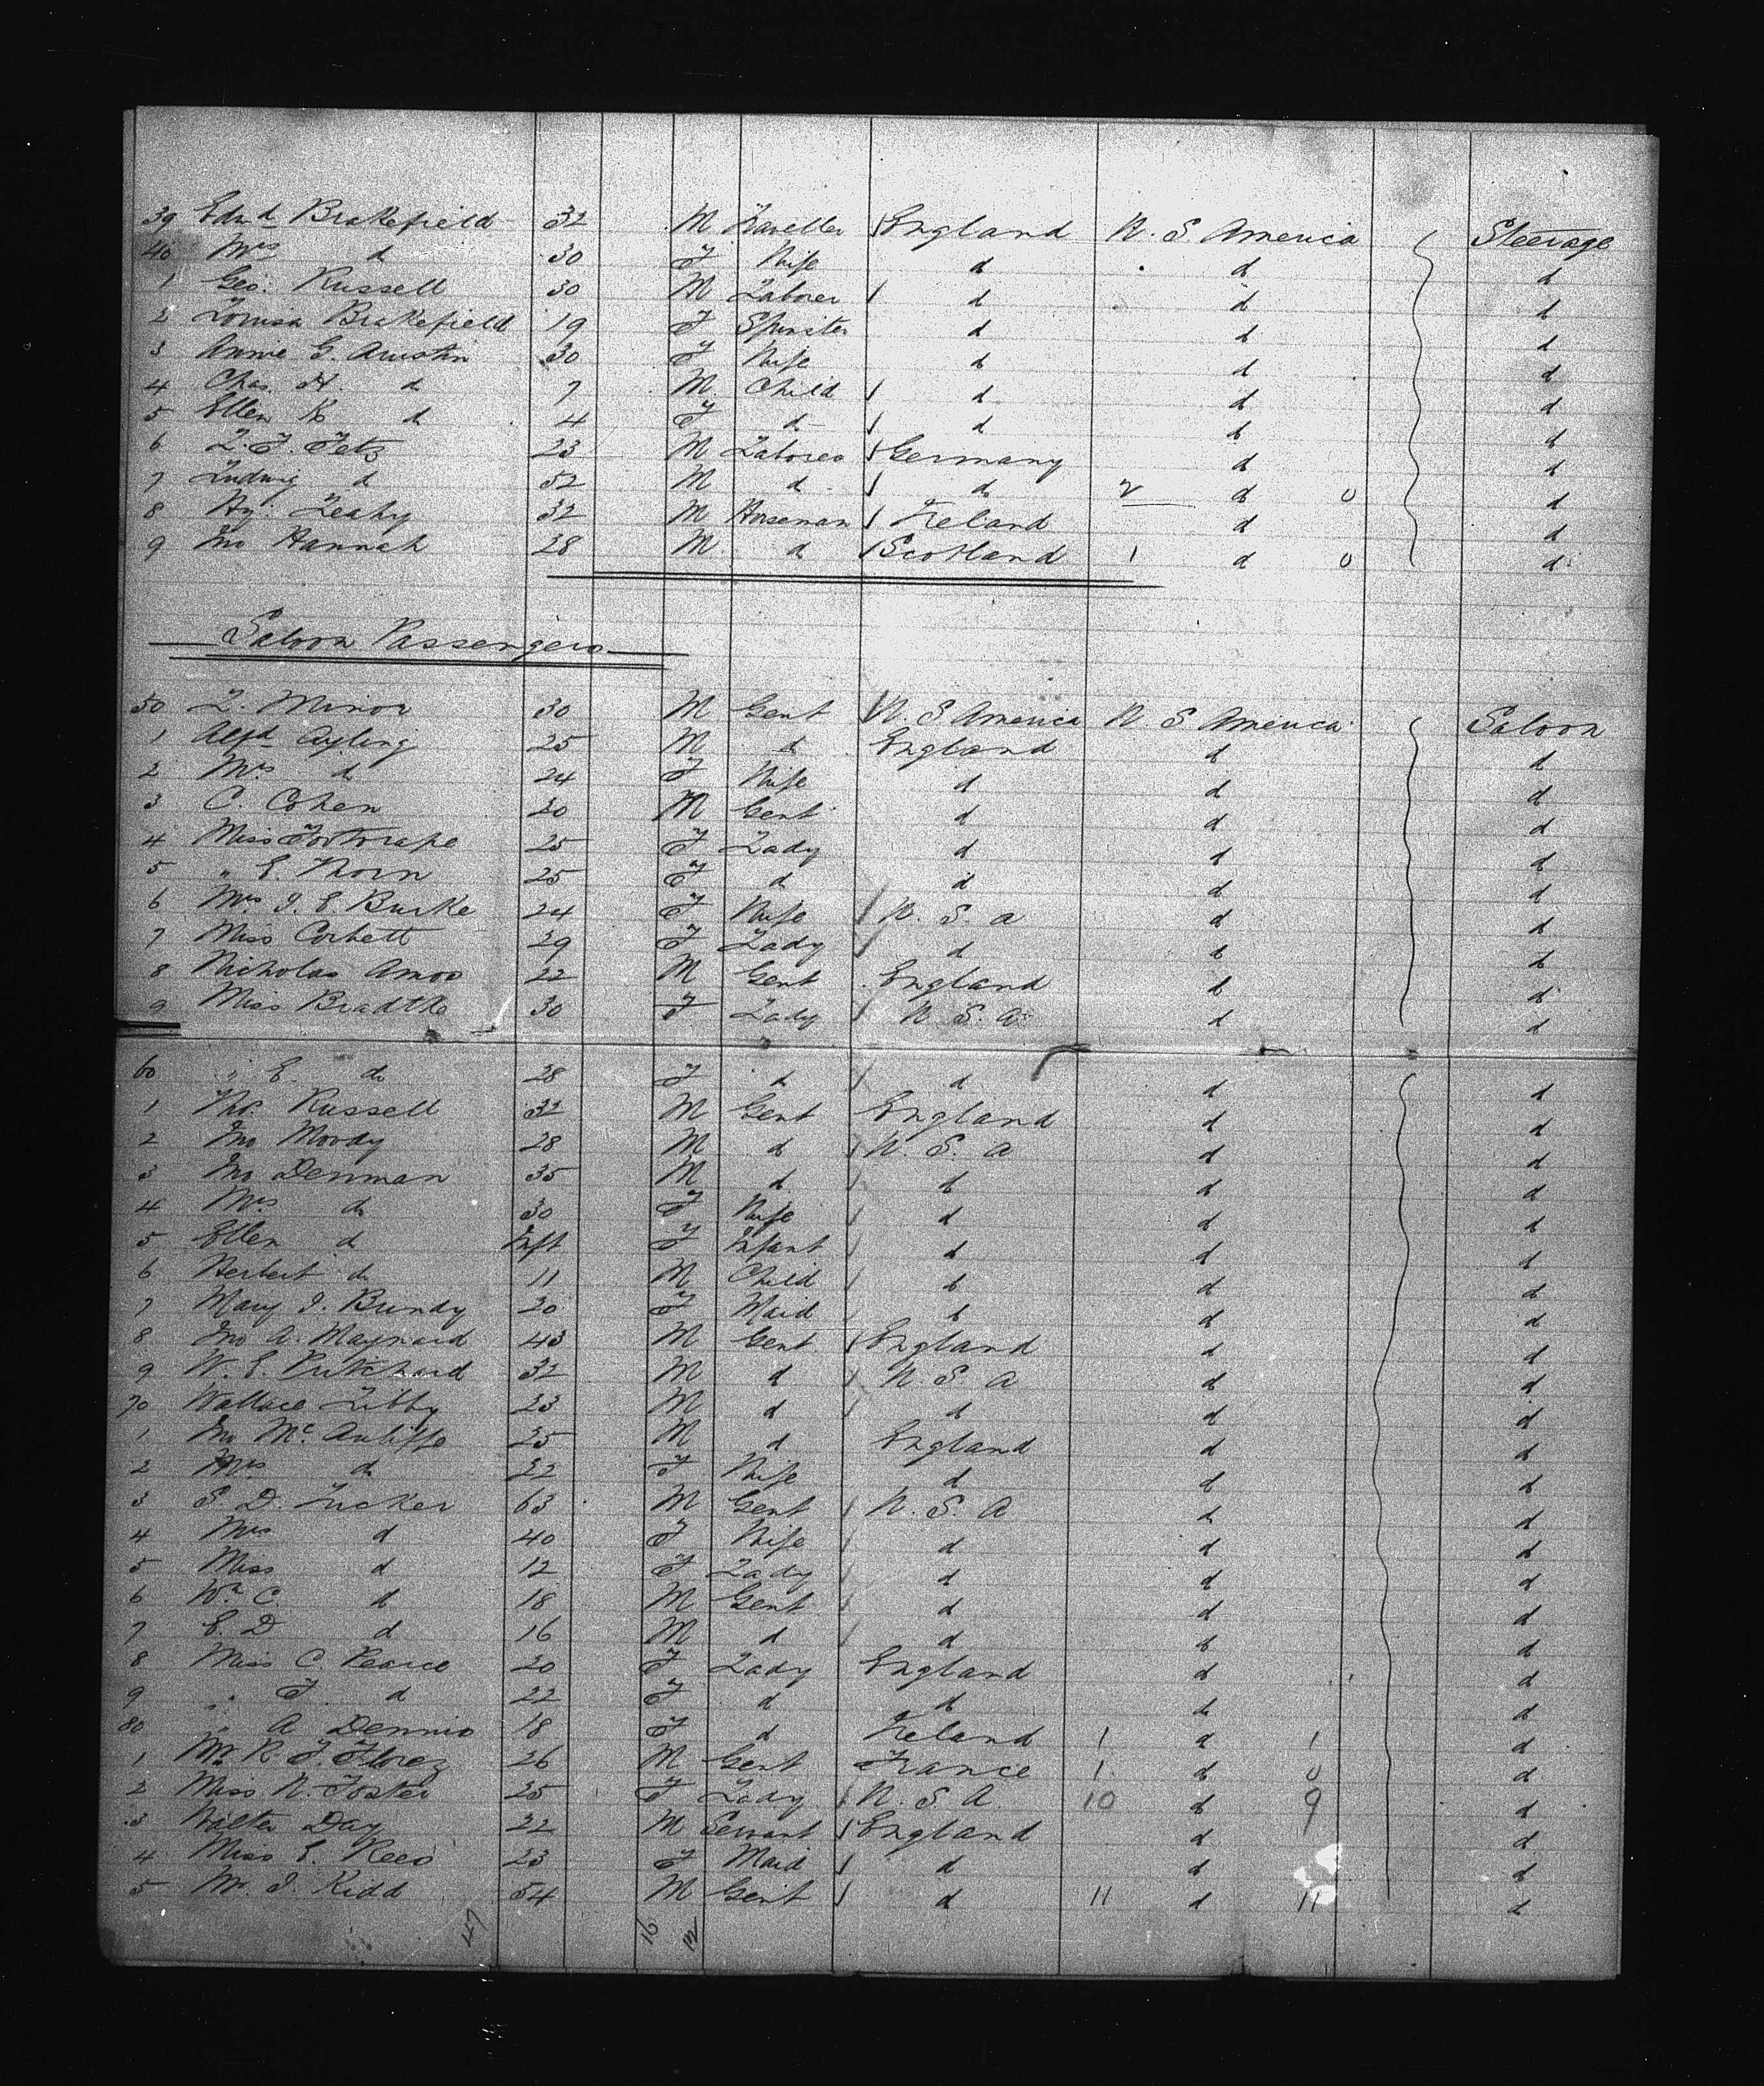 39 Edwd Brakefield 32 M Traveller England U. S. America Steerage
40 Mrs d 30 F Wife d d d
1 Geo. Russell 30 M Laborer d d d
2 Louisa Brakefield 19 F Spinster d d d
3 Annie G. Austin 30 F Wife d d d
4 Chas. H. d 7 M Child d d d
5 Ellen K d 4 F d d d d
6 L. F. Fetz 23 M Laborer Germany d d
7 Ludwig d 52 M d do 2 d 0 d
8 Hy: Leahy 32 M Horseman Ireland d d
9 Jno Hannah 28 M d Scotland 1 d 0 d
Saloon Passengers
50 L. Minor 30 M Gent U. S America U S America Saloon
1 Alfd Ayling 25 M d England d d
2 Mrs d 24 F Wife d d d
3 C. Cohen 20 M Gent d d d
4 Miss 25 F Lady d d d
5 " E. Thorn 25 F d d d d
6 Mrs J. E Burke 24 F Wife U. S. A d d
7 Miss Corbett 29 F Lady d d d
8 Nicholas Amos 22 M Gent England d d
9 Miss Bradtke 30 F Lady U. S. A d d
60 " E. do 28 F d d d d
1 Thos. Russell 32 M Gent England d d
2 Jno Moody 28 M d U. S. A d d
3 Jno Denman 35 M d d d d
4 Mrs do 30 F Wife d d d
5 Ellen d Inft F Infant d d d
6 Herbert do 11 M Child d d d
7 Mary J. Bundy 20 F Maid d d d
8 Jno A. Maynard 43 M Gent England d d
9 W. E. Pritchard 32 M d U. S. A d d
70 Wallace Libby 23 M d d d d
1 Jno Mc. Auliffe 25 M d England d d
2 Mrs do 22 F Wife d d d
3 S. D. Tucker 63 M Gent U. S. A d d
4 Mrs d 40 F Wife d d d
5 Miss d 12 F Lady d d d
6 Wm C. d 18 M Gent d d d
7 E. D d 16 M d d d d
8 Miss C. Pearce 20 F Lady England d d
9 " F. d 22 F d d d d
80 " A Dennis 18 F d Ireland 1 d 1 d
1 Mr R. F. Florez 26 M Gent France 1 d 0 d
2 Miss N. Foster 25 F Lady U. S. A. 10 d 9 d
3 Walter Day 22 M Servant England d d
4 Miss E. Rees 23 F Maid d d d
5 Mr. J. Kidd 54 M Gent d 11 d 11 d
47 16